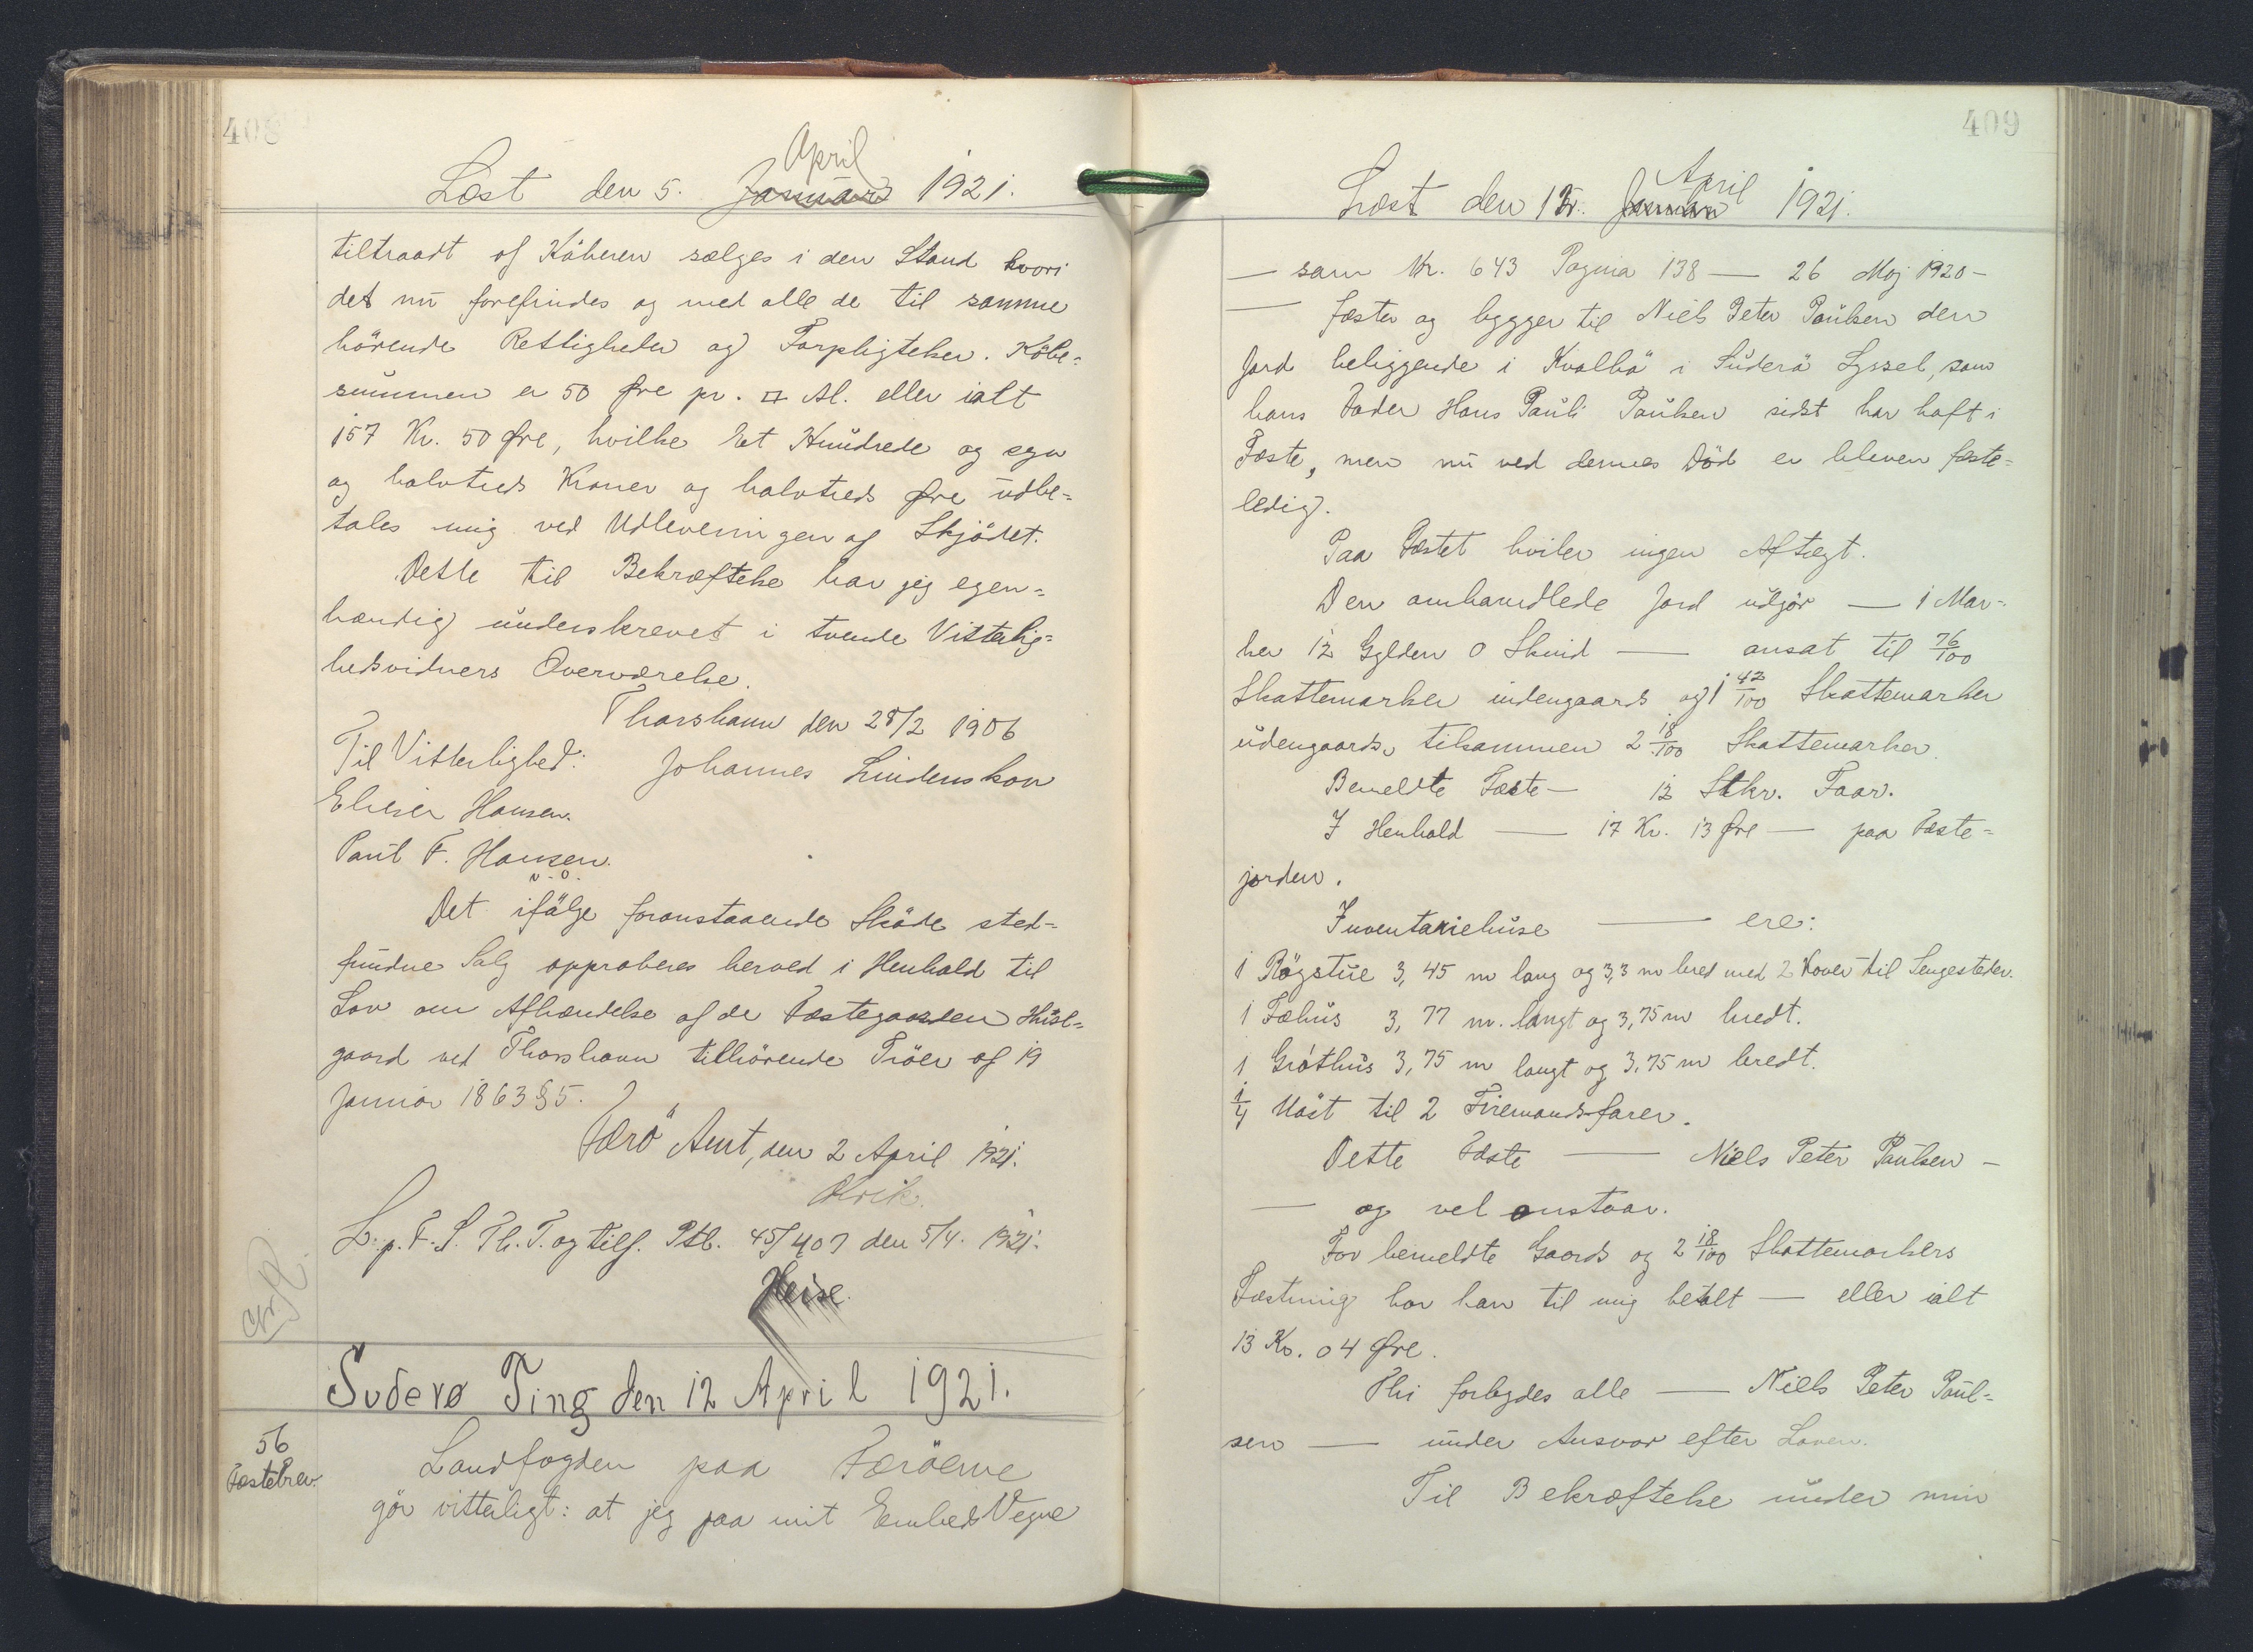 408
April
Læst den 5. Januar 1921.
tiltraadt af Köberen sælges i den Stand hvori
det nu forefindes og med alle de til samme
hörende Rettigheder og Forpligtelser. Köbe=
summen er 50 Øre pr. □ Al. eller ialt
157 Kr. 50 Øre, hvilke Et Hundrede og syv
og halvtreds Kroner og halvtreds Øre udbe=
tales mig ved Udleveringen af Skjödet.
Dette til Bekræftelse har jeg egen=
hændig underskrevet i tvende Vitterlig=
hedsvidners Overværelse.
Thorshavn den 28/2 1906
Til Vitterlighed: Johannes Lindenskov
Elieser Hansen.
Paul F. Hansen.
v. o.
Det ifölge foranstaaende Sköde sted=
fundne Salg approberes herved i Henhold til
Lov om Afhændelse af de Fæstegaarden Husl=
gaard ved Thorshavn tilhörende Tröer af 19
Januar 1863 § 5.
Færö Amt, den 2 April 1921.
Ølrik.
L. p. F. S. Th. T. og tilf. Ptb. 45/407 den 5/4. 1921.
Heise.
Suderø Ting den 12 April 1921.
56
Fæstebrev.
Landfogden paa Færöerne
gör vitterligt: at jeg paa mit Embeds Vegne
409
April
Læst den 12. Januar 1921.
— som Nr. 643 Pagina 138 — 26 Maj 1920 —
— fæster og bygger til Niels Peter Paulsen den
Jord beliggende i Kvalbö i Suderö Syssel, som
hans Fader Hans Pauli Paulsen sidst har haft i
Fæste, men nu ved dennes Död er bleven fæste=
ledig.
Paa Fæstet hviler ingen Aftægt.
Den omhandlede Jord udgör — 1 Mar=
ker 12 Gylden 0 Skind — ansat til 76/100
Skattemarker indengaards og 1 42/100 Skattemarker
udengaards, tilsammen 2 18/100 Skattemarker.
Bemeldte Fæste — 12 Stkr. Faar.
I Henhold — 17 Kr. 13 Øre — paa Fæste=
jorden.
Inventariehuse — ere:
1 Rögstue 3,45 m lang og 3,3 m bred med 2 Kover til Sengesteder.
1 Fæhus 3,77 m. langt og 3,75 m bredt.
1 Gróthus 3,75 m langt og 3,75 m bredt.
1/4 Nöst til 2 Firemandsfarer.
Dette Fæste — Niels Peter Paulsen —
— og vel anstaar.
For bemeldte Gaards og 2 18/100 Skattemarkers
Fæstning har han til mig betalt — eller ialt
13 Kr. 04 Øre.
Thi forbydes alle — Niels Peter Paul=
sen — under Ansvar efter Loven.
Til Bekræftelse under min